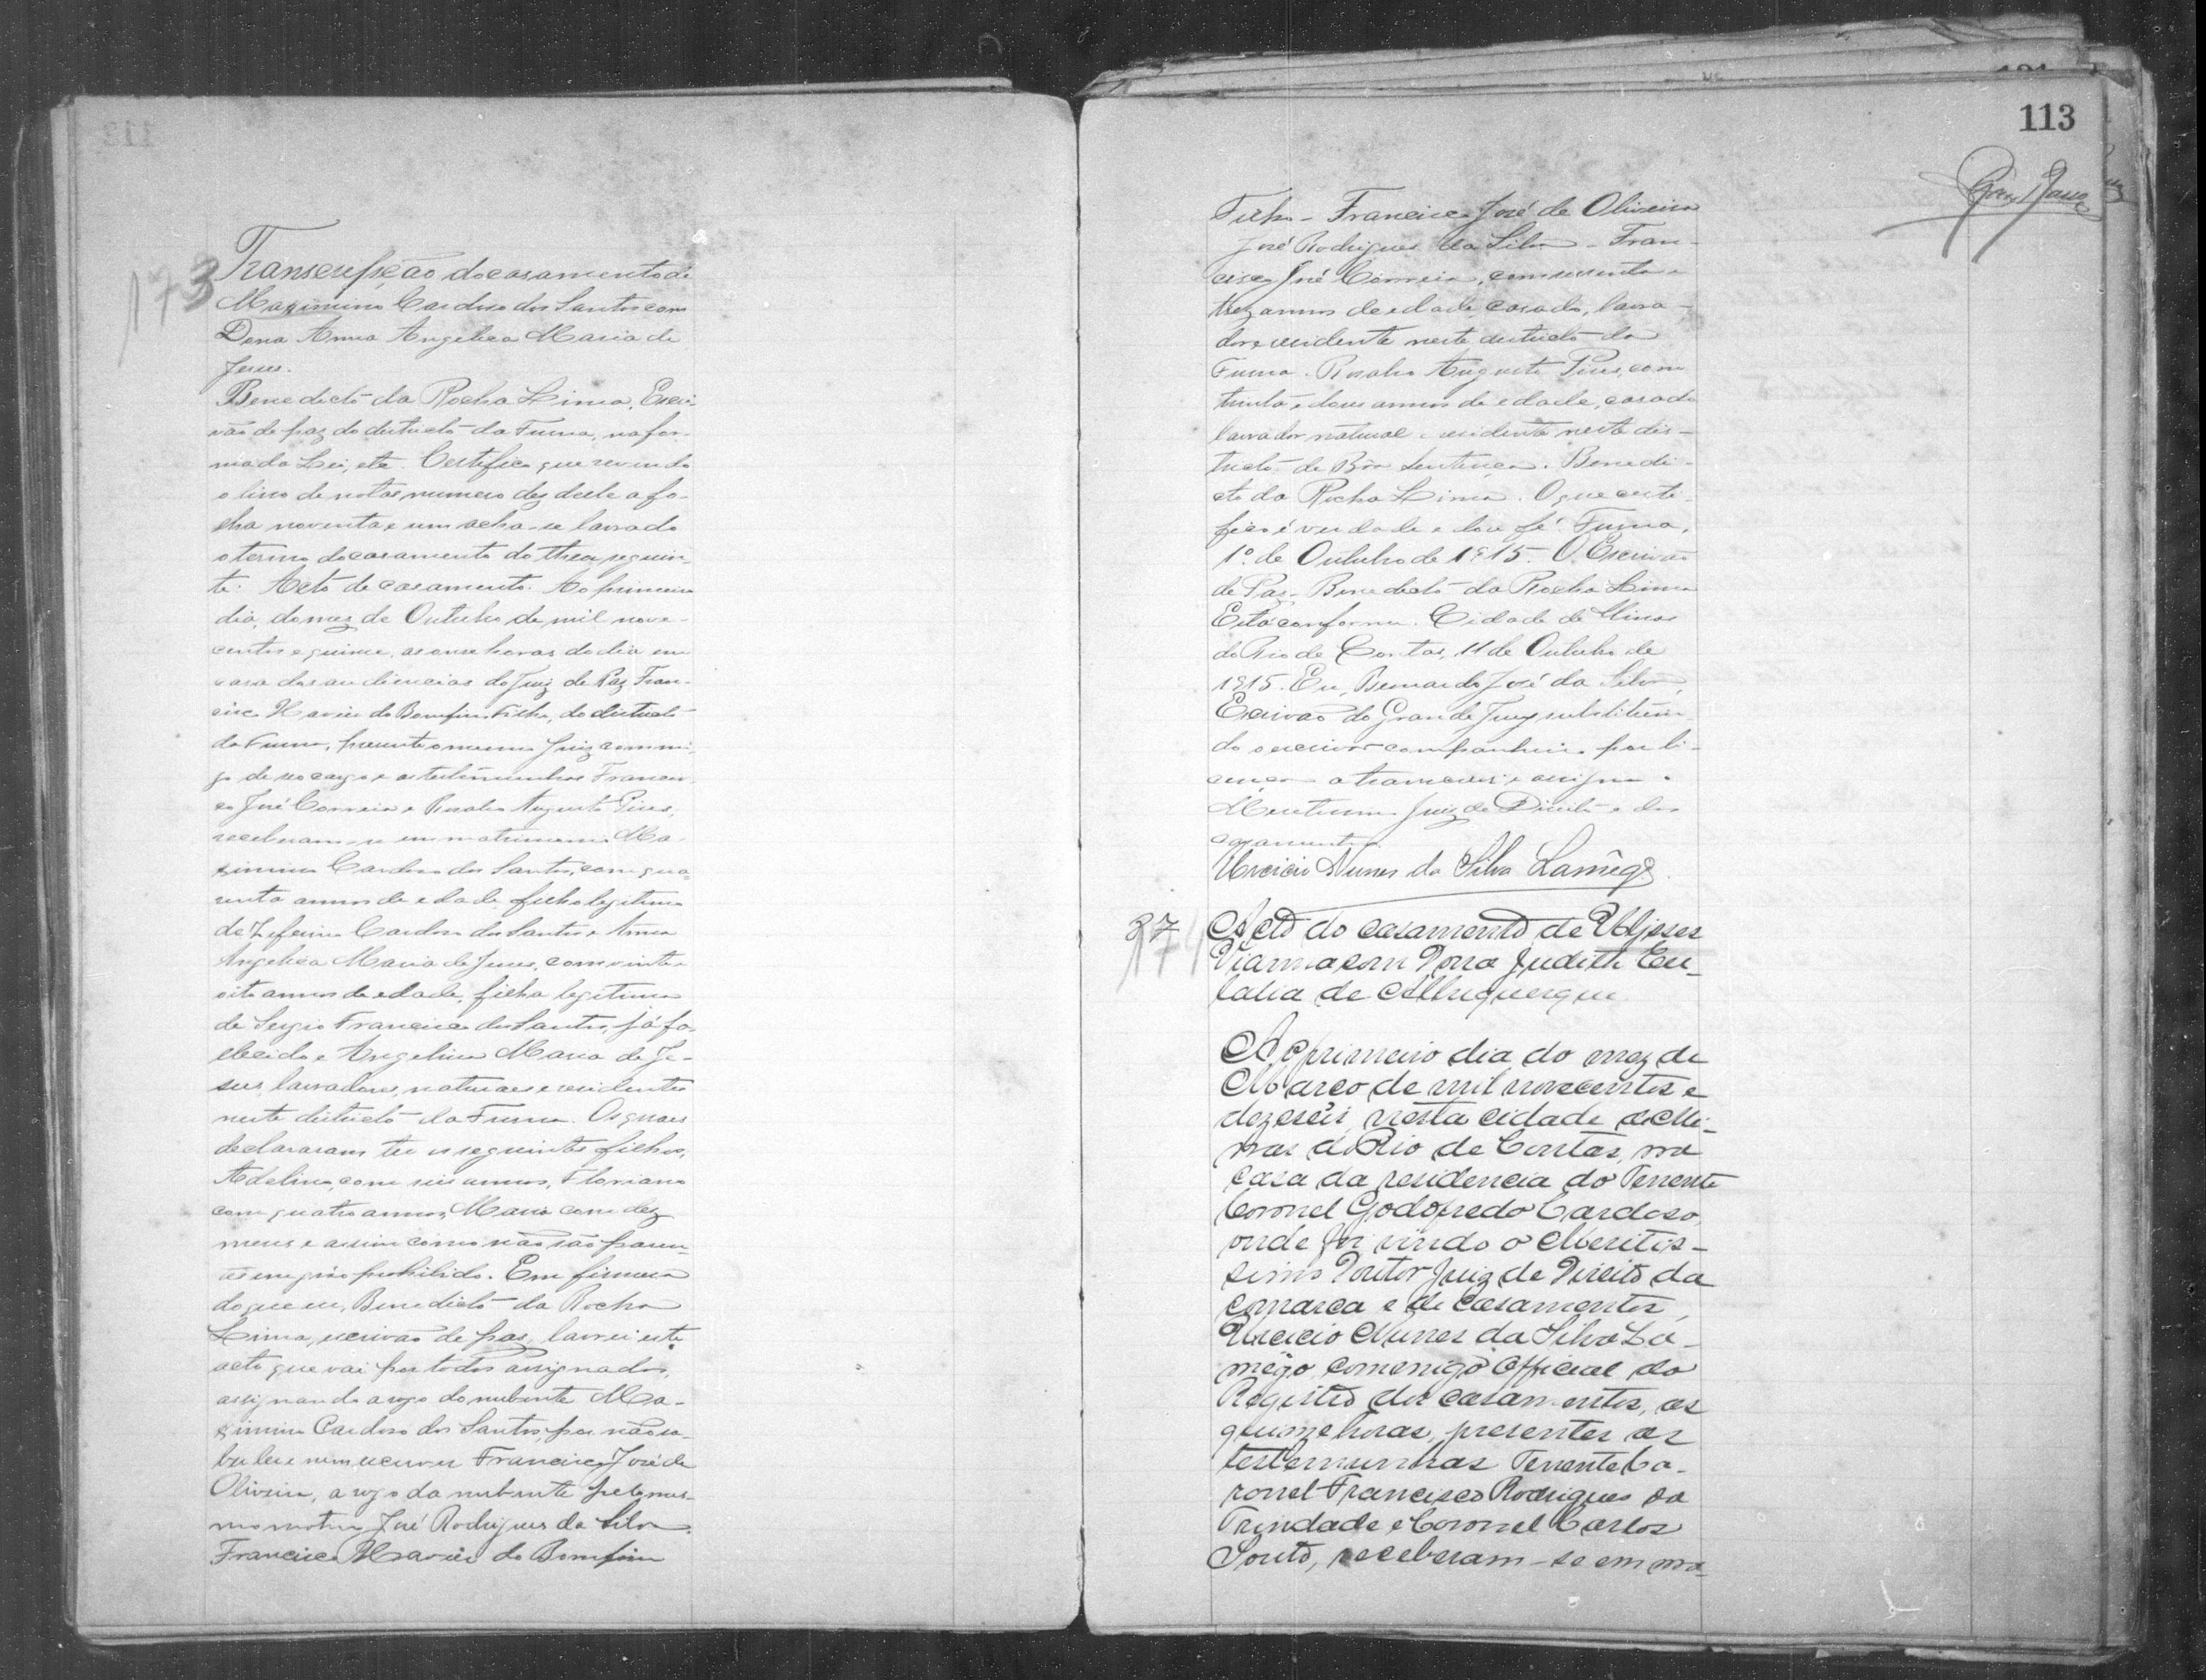 173
Transcripção do casamento de
Maximino Cardoso dos Santos com
Dona Anna Angelica Maria de
Jesus.
Benedicto da Rocha Lima, Escri-
vão de paz do districto da Furna, na for-
ma da Lei, etc. Certifico que revendo
o livro de notas numero dez delle a fo-
lha noventa e um acha-se lavrado
o termo do casamento do theor seguin-
te: Acto de casamento. Ao primeiro
dia, do mez de Outubro de mil nove-
centos e quinze, as onze horas do dia em
casa das audiencias do Juiz de Paz Fran-
cisco Xavier do Bomfim Filho, do districto
da Furna, presente o mesmo Juiz commi-
go de seo cargo e as testimunhas Francis-
co José Correia e Rosalvo Augusto Pires,
receberam-se em matrimonio Ma-
ximino Cardoso dos Santos, com qua-
renta annos de edade, filho legitimo
de Zeferino Cardoso dos Santos e Anna
Angelica Maria de Jesus, com vinte e
oito annos de edade, filha legitima
de Sergio Francisco dos Santos, já fa-
llecido e Angelina Maria de Je-
sus, lavradores, naturaes e residentes
neste districto da Furna. Os quaes
declararam ter os seguintes filhos,
Adelino, com seis annos, Floriano
com quatro annos, Maria com dez
mezes e assim como não são paren-
tes em gráo prohibido. Em firmeza
do que eu, Benedicto da Rocha
Lima, escrivão de paz, lavrei este
acto que vai por todos assignados,
assignando a rogo do nubente Ma-
ximino Cardoso dos Santos, por não sa-
ber ler e nem escrever Francisco José de
Oliveira, a rogo da nubente pelo mes-
mo motivo José Rodrigues da Silva.
Francisco Xavier do Bomfim
113
Filho - Francisco José de Oliveira
José Rodrigues da Silva - Fran-
cisco José Correia, com secenta e
trez annos de edade, casado, lavra-
dor e residente neste districto da
Furna. Rosalvo Augusto Pires, com
trinta e dous annos de edade, casado
lavrador natural e residente neste dis-
tricto de Bôa Sentença. Benedi-
cto da Rocha Lima. O que certi-
fico é verdade e dou fé. Furna,
1º de Outubro de 1915. O Escrivão
de Paz - Benedicto da Rocha Lima
Está conforme. Cidade de Minas
do Rio de Contas, 11 de Outubro de
1915. Eu, Bernardo José da Silva,
Escrivão do Grande Jury substituin-
do o escrivão companheiro por li-
cença a transcrevi e assigna o
Meretissimo Juiz de Direito e dos
casamentos.
Urcicio Nunes da Silva Lamêgo.
37
174
Acto do casamento de Ulysses
Vianna com Dona Judith Eu-
lalia de Albuquerque
Ao primeiro dia do mez de
Março de mil novecentos e
dezeseis, nesta cidade de Mi-
nas do Rio de Contas, na
casa da residencia do Tenente
Coronel Godofredo Cardoso,
onde foi vindo o Meritis-
simo Doutor Juiz de Direito da
comarca e de casamentos,
Urcicio Nunes da Silva La-
mêgo, comemigo Official do
Registro dos casamentos, as
quinze horas, presentes as
testemunhas Tenente Co-
ronel Francisco Rodrigues da
Trindade e Coronel Carlos
Souto, receberam-se em ma-